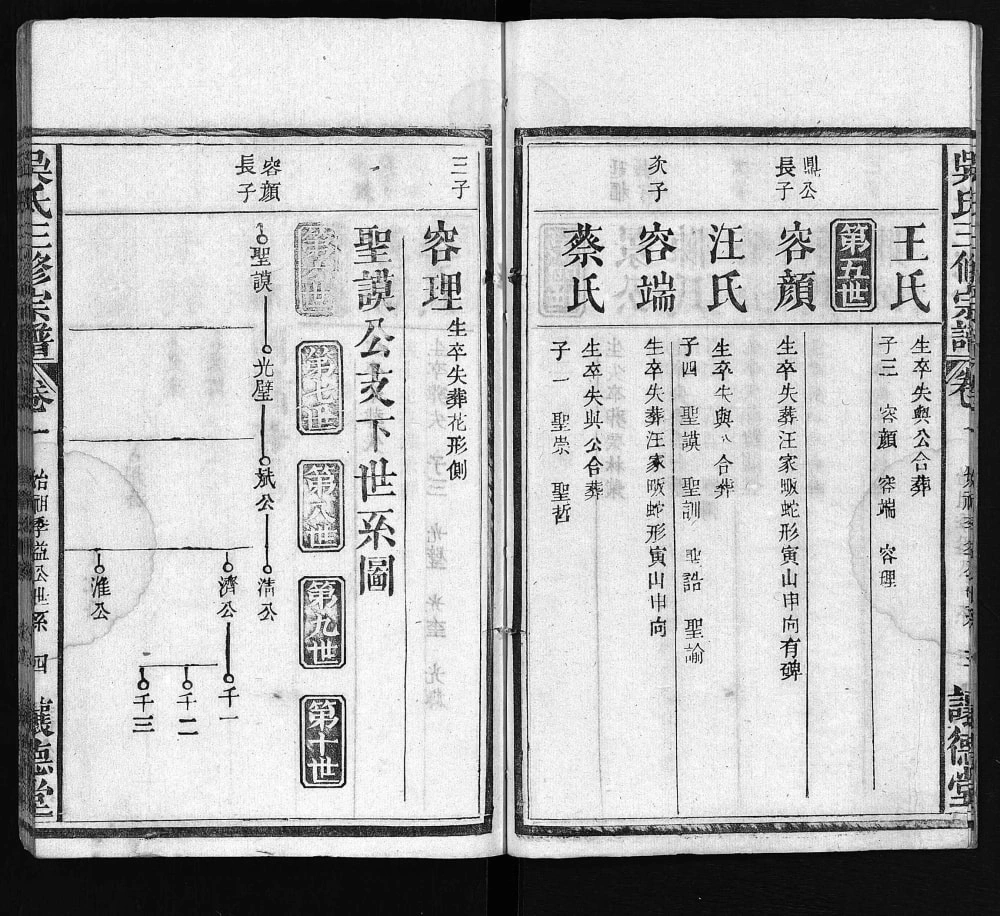 吳氏三修宗譜
讓德堂
王氏
生卒失與公合葬
子三 容顏 容端 容理
第五世
鼎公
長子
容顏
生卒失葬汪家畈蛇形寅山申向有碑
汪氏
生卒失與公合葬
子四 聖謨 聖訓 聖誥 聖諭
次子
容端
生卒失葬汪家畈蛇形寅山申向
蔡氏
生卒失與公合葬
子一 聖崇 聖哲
三子
容理
生卒失葬花形側
聖謨公支下世系圖
第六世
第七世
第八世
第九世
第十世
容顏
長子
聖謨
光璧
斌公
清公
濟公
淮公
千一
千二
千三
吳氏三修宗譜
卷一
始祖季益公世系
四
讓德堂